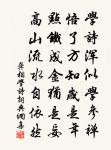 學詩渾似學參禪
悟了方知歲是年
點鐵成金猶是妄
高山流水自依然
龔相學詩詞典網集